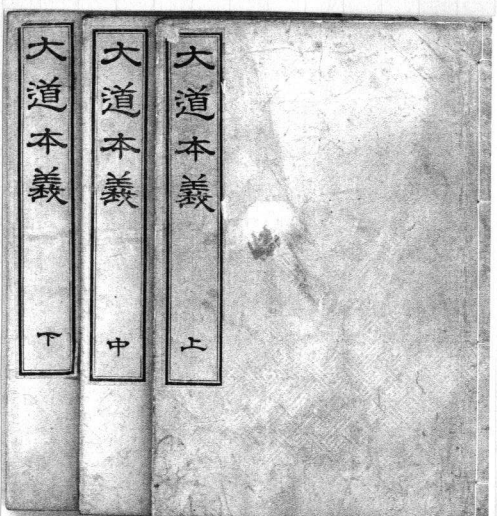 大道本義 上
大道本義 中
大道本義 下